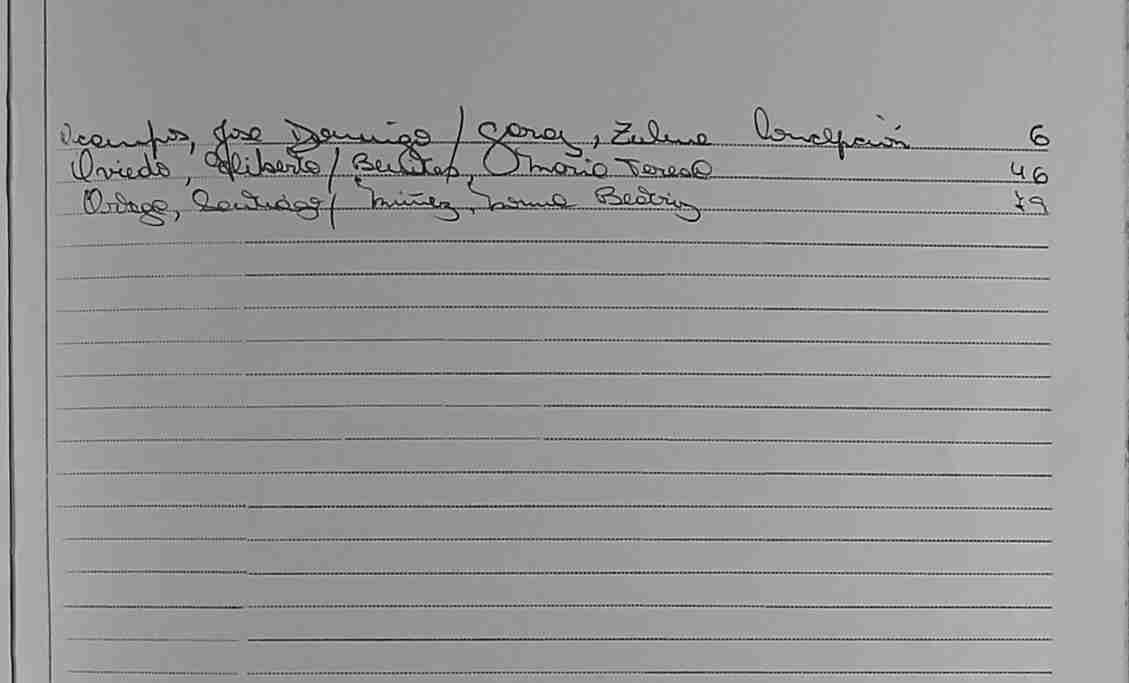 Ocampos, José Domingo / Garay, Zulma Concepción 6
Oviedo, Eliberto / Benitez, Maria Teresa 46
Ortega, Santiago / Núñez, Norma Beatriz 79